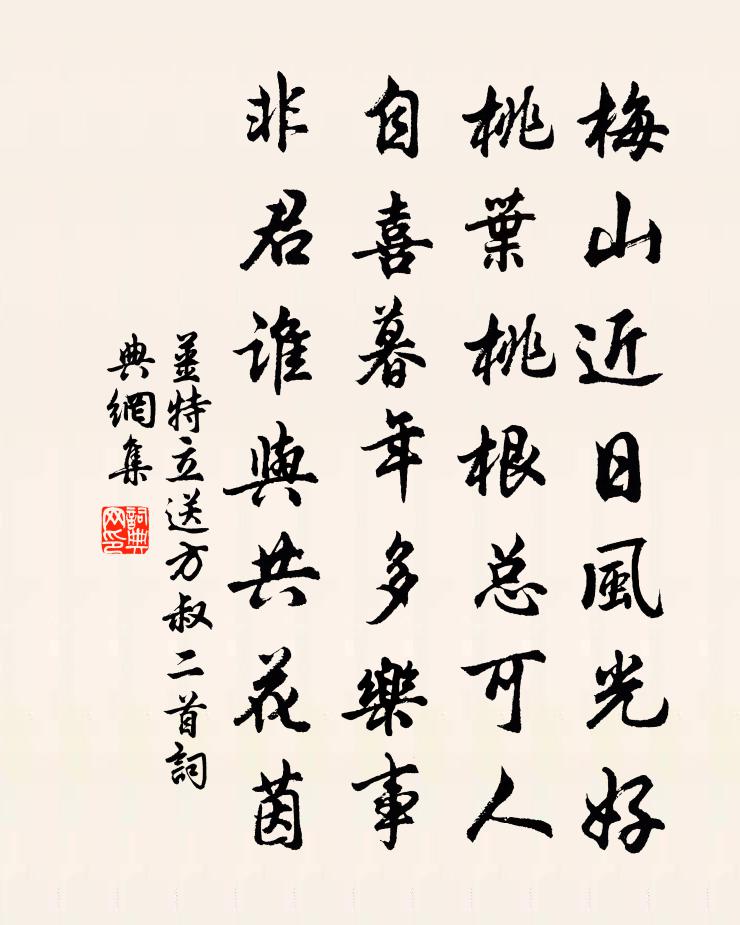 梅山近日風光好
桃葉桃根总可人
自喜暮年多樂事
非君誰與共花茵
姜特立送方叔二首詞
典網集
詞典
网印